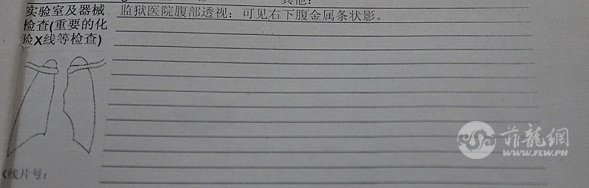 其他:
实验室及器械
检查(重要的化
验X线等检查)
监狱医院腹部透视：可见右下腹金属条状影。
线片号:
菲龍網
WWW.FLW.PH